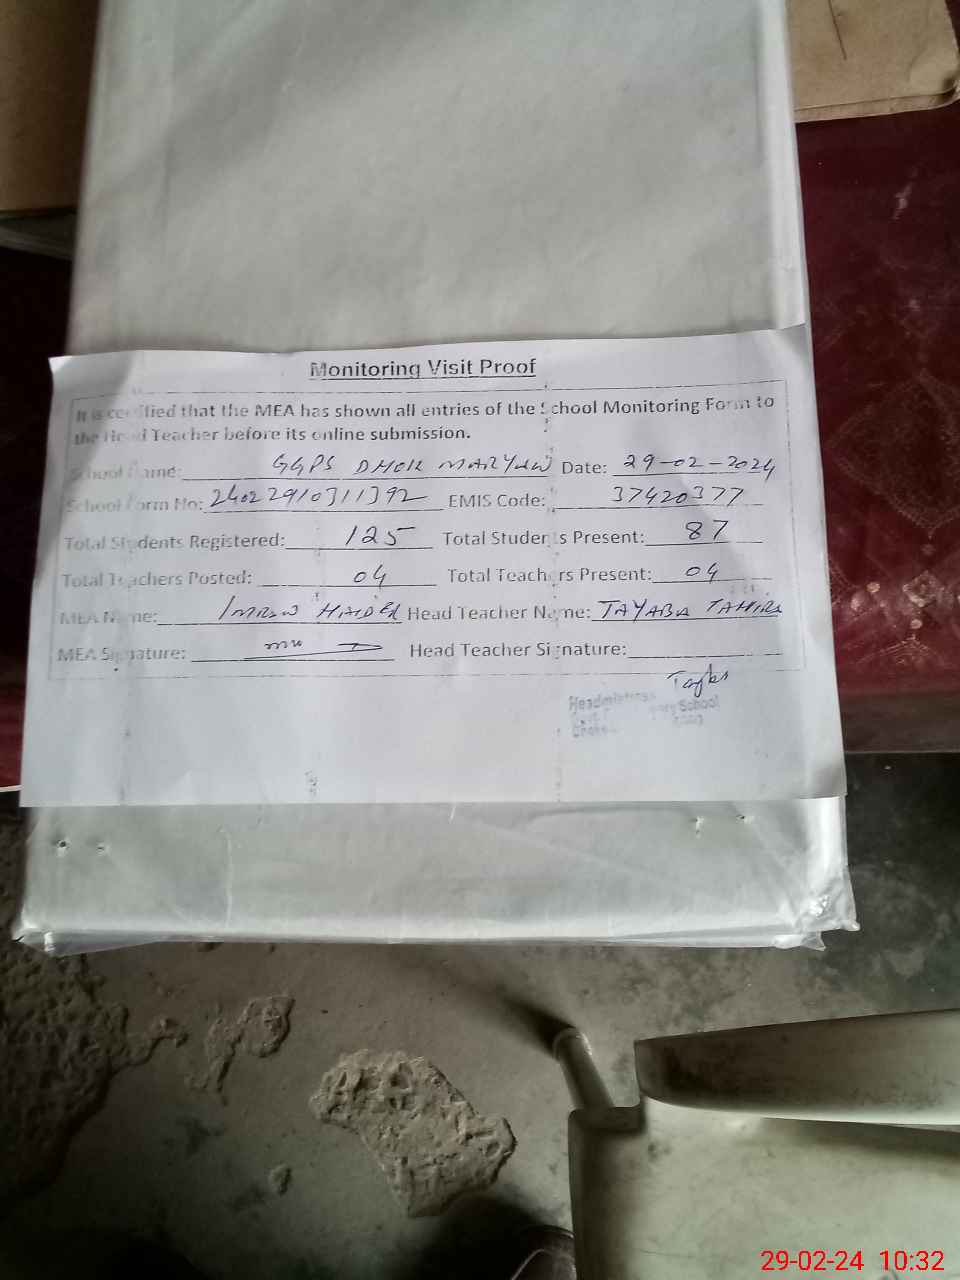 Monitoring Visit Proof
It is certified that the MEA has shown all entries of the School Monitoring Form to
the Head Teacher before its online submission.
School Name: GGPS DHOK MARYAN Date: 29-02-2024
School Form No: 24022910311392 EMIS Code: 37420377
Total Students Registered: 125 Total Students Present: 87
Total Teachers Posted: 04 Total Teachers Present: 04
MEA Name: IMRAN HAIDER Head Teacher Name: TAYABA TAHIRA
MEA Signature: Head Teacher Signature:
Headmistress
School
29-02-24 10:32